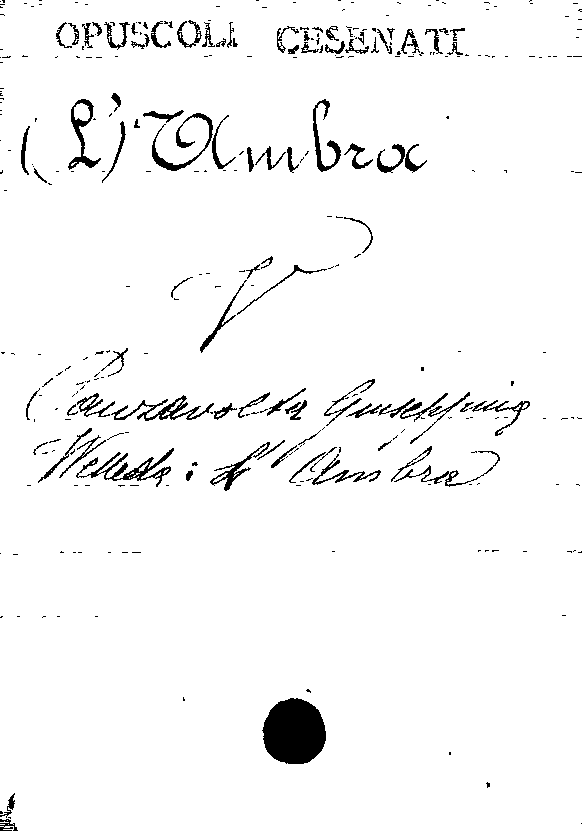 OPUSCOLI CESENATI
(L') Ambra
V
Panzavolta Giuseppina
Welleda: L'Ambra